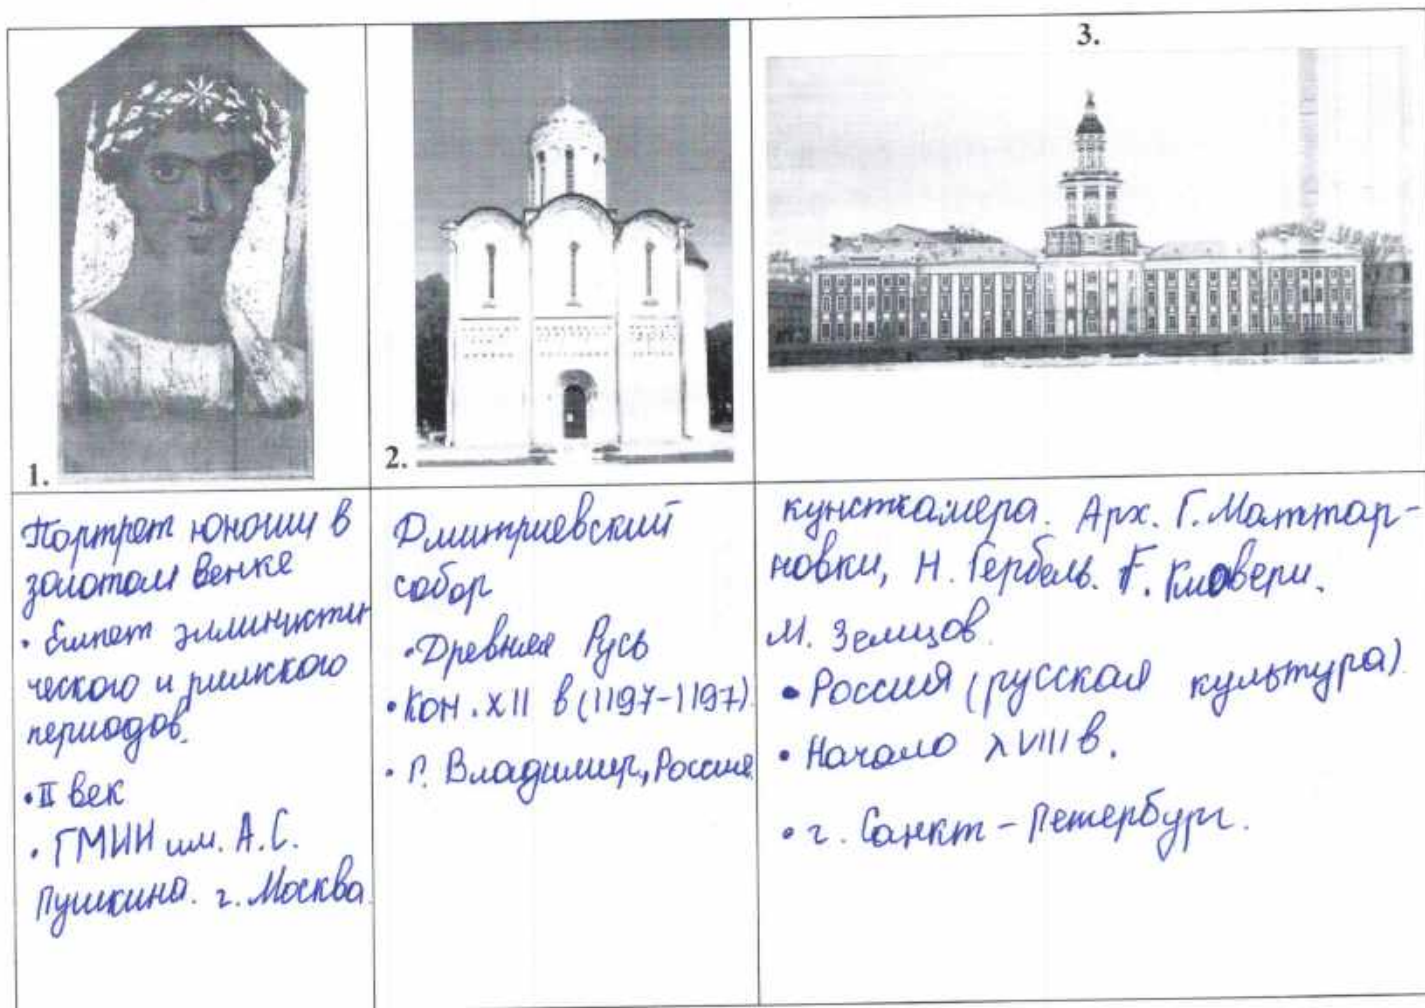 3.
1.
2.
Портрет юноши в
золотом венке
• Египет эллинисти
ческого и римского
периодов.
• II век
• ГМИИ им. А.С.
Пушкина. г. Москва
Дмитриевский
собор
• Древняя Русь
• Кон. XII в (1197-1197)
• г. Владимир, Россия
кунсткамера. Арх. Г. Маттар-
новки, Н. Гербель. Г. Киавери.
М. Земцов.
• Россия (русская культура)
• Начало XVIII в.
• г. Санкт-Петербург.